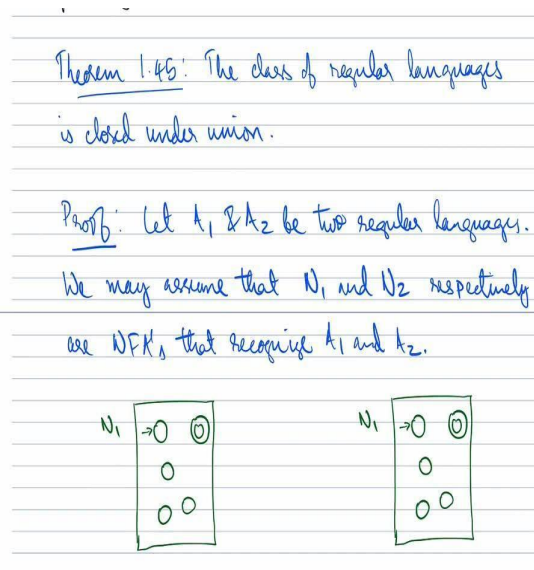 Theorem 1.45: The class of regular languages
is closed under union.
Proof: Let A1 & A2 be two regular languages.
We may assume that N1 and N2 respectively
are NFA's that recognize A1 and A2.
N1 N1